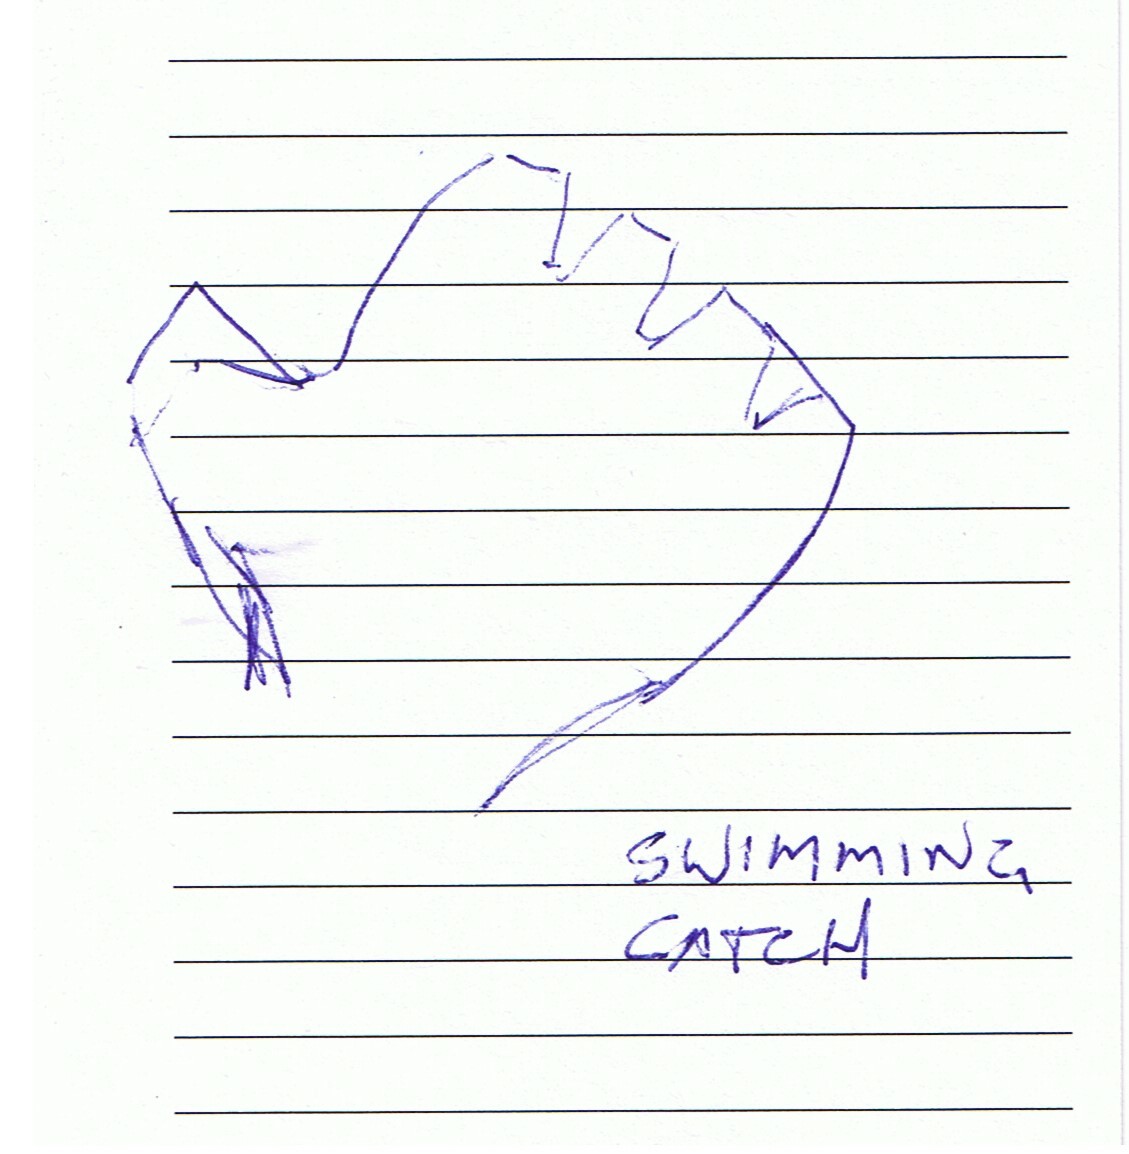 SWIMMING
CATCH